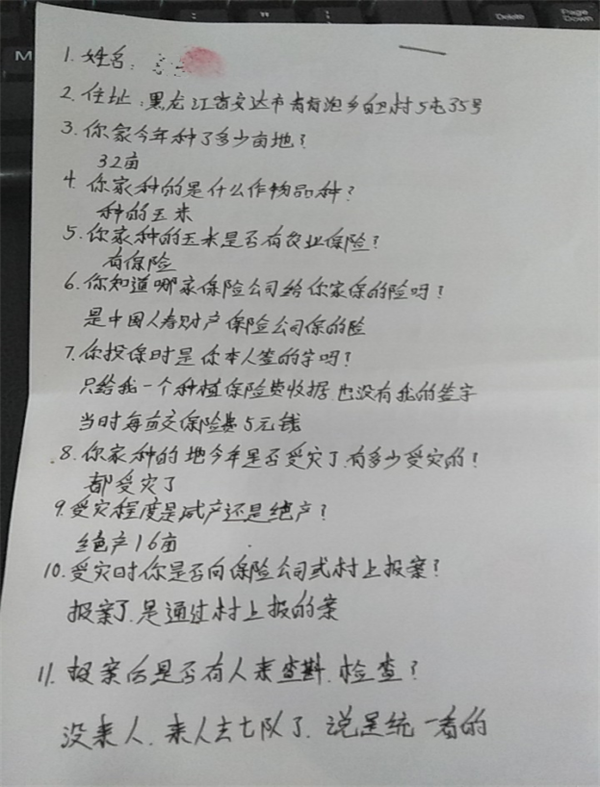 Delete
Page
Down
1. 姓名:
2. 住址:黑龙江省安达市青肯泡乡 村5屯35号
3. 你家今年种了多少亩地?
32亩
4. 你家种的是什么作物品种?
种的玉米
5. 你家种的玉米是否有农业保险?
有保险
6. 你知道哪家保险公司给你家保的险吗?
是中国人寿财产保险公司保的险
7. 你投保时是你本人签的字吗?
只给我一个种植保险费收据.也没有我的签字
当时每亩交保险费5元钱
8. 你家种的地今年是否受灾了.有多少受灾的?
都受灾了
9. 受灾程度是减产还是绝产?
绝产16亩
10. 受灾时你是否向保险公司或村上报案?
报案了.是通过村上报的案
11. 报案后是否有人来查斟.检查?
没来人.来人去七队了.说是统一看的